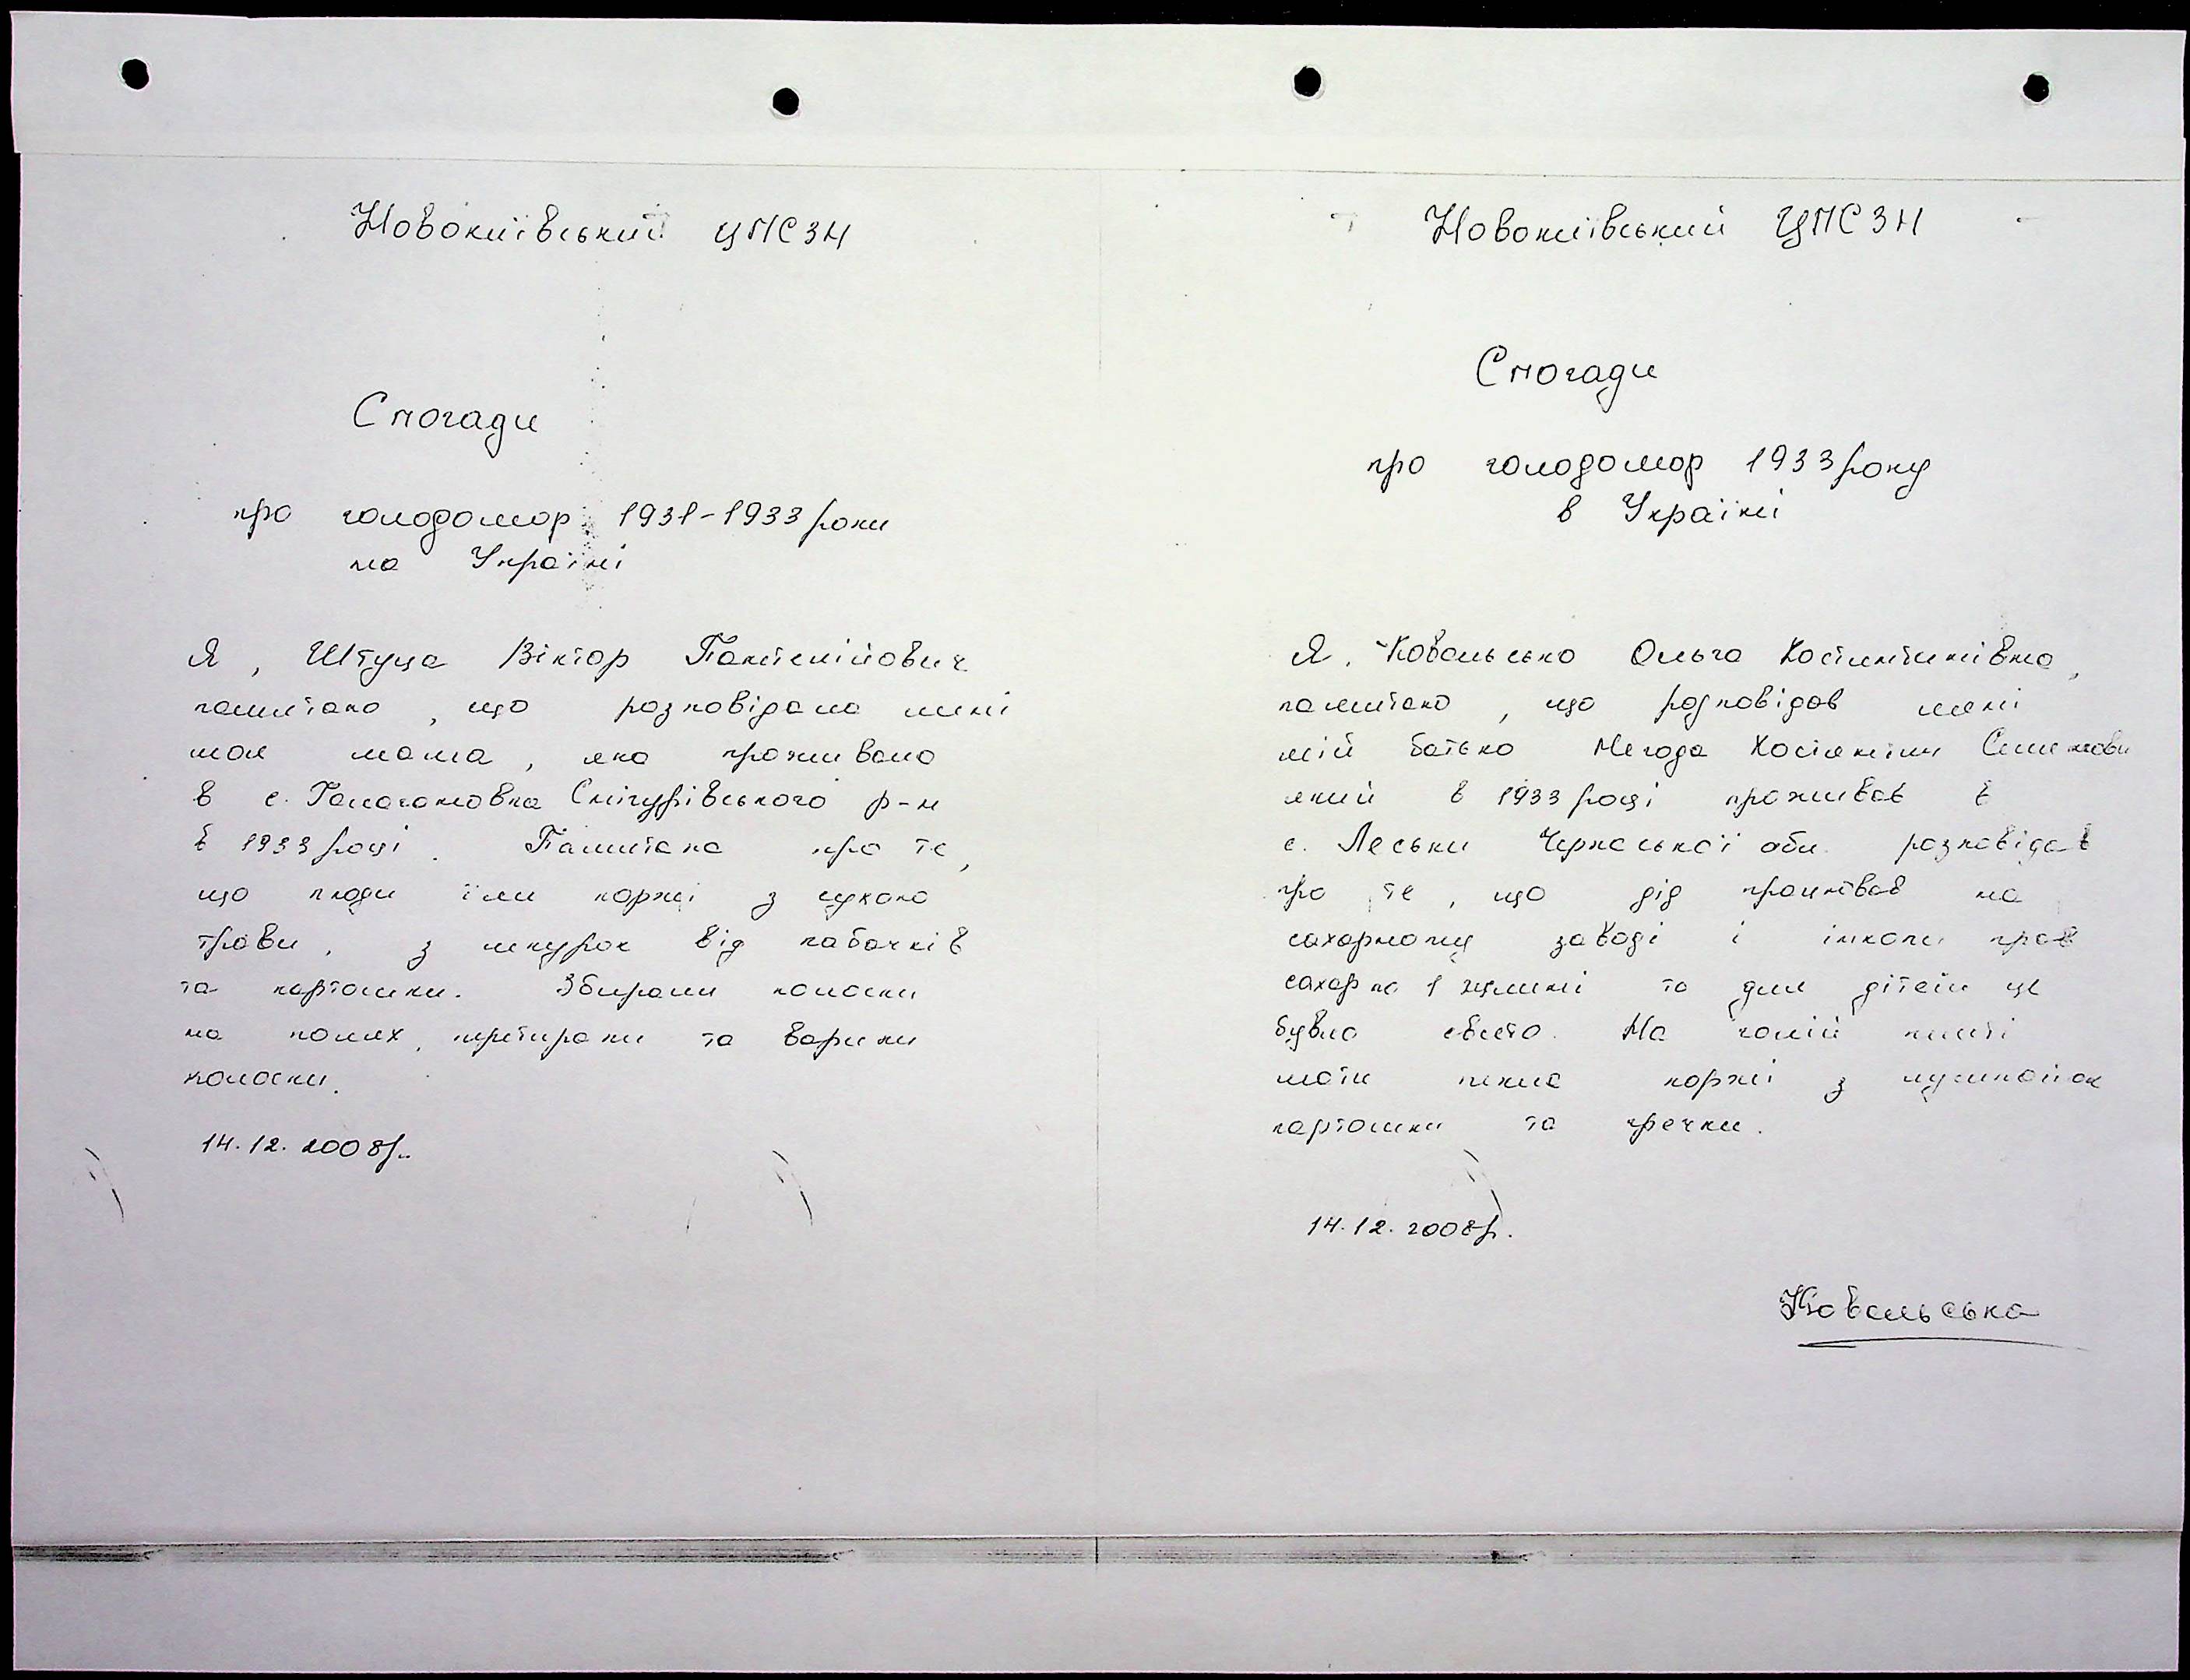 Новокиївський ЦПСЗН
Спогади
про голодомор 1931-1933 роки
на Україні
Я, Штуца Віктор Пантелійович
памятаю, що розповідала мині
моя мама, яка проживала
в с. Галагановка Снігурівського р-н
в 1933 році. Памятаю про те,
що люди їли коржі з сухої
трави, з шкурок від кабачків
та картошки. Збирали колоски
на полях, перетирали та варили
колоски.
14.12.2008р.
Новокиївський ЦПСЗН
Спогади
про голодомор 1933 року
в Україні
Я, Ковальська Ольга Костянтинівна,
памятаю, що розповідав мені
мій батько Негода Костянтин Семенови
який в 1933 році проживав в
с. Леськи Черкаської обл. розповідав
про те, що дід працював на
сахарному заводі і інколи крав
сахар по 1 жмині то для дітей це
було свято. На голій плиті
мати пекла коржі з лушпайок
картошки та гречки.
14.12.2008р.
Ковальська